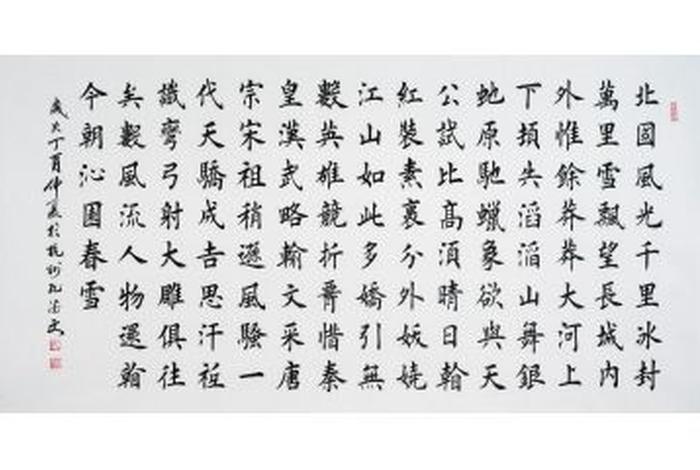 北國風光千里冰封
萬里雪飄望長城內
外惟餘莽莽大河上
下頓失滔滔山舞銀
蛇原馳蠟象欲與天
公試比高須晴日看
紅裝素裹分外妖嬈
江山如此多嬌引無
數英雄競折腰惜秦
皇漢武略輸文采唐
宗宋祖稍遜風騷一
代天驕成吉思汗祗
識彎弓射大雕俱往
矣數風流人物還看
今朝沁園春雪
歲次丁酉仲夏於杭州